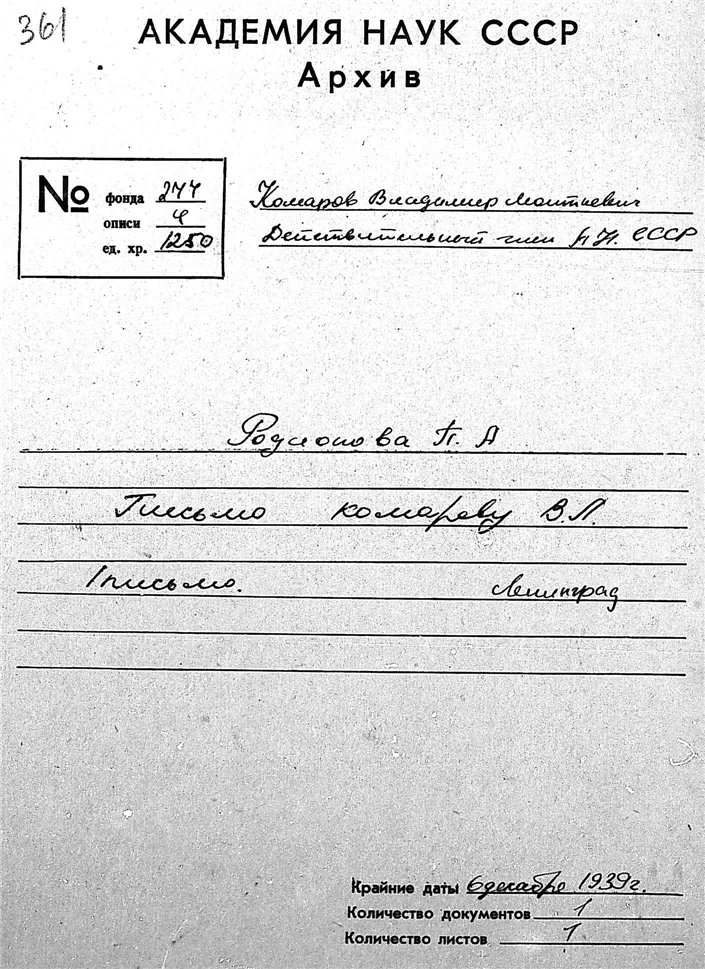 361
АКАДЕМИЯ НАУК СССР
Архив
№ фонда 277
описи 4
ед. хр. 1250
Комаров Владимир Леонтьевич
Действительный член А.Н. СССР
Родионова П. А
Письмо Комарову В.Л.
1 письмо. Ленинград
Крайние даты 6 декабря 1939г.
Количество документов 1
Количество листов 1